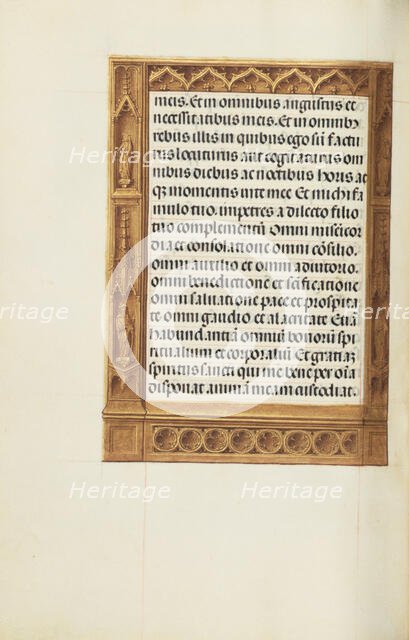 meis. Et in omnibus angustiis et
necessitatibus meis. Et in omnibꝫ
rebus illis in quibus ego sū factu
rus locuturus aut cogitaturus om
nibus diebus ac noctibus horis ac
qꝫ momentis vite mee Et michi fa
mulo tuo. impetres a dilecto filio
tuo complementū Omni misericor
dia et consolatione omni cōsilio.
omni auxilio et omni adiutorio.
omni benedictione et sc̄ificatione
omni saluatione pace et prosperita
te omni gaudio et alacritate Etiā
habundantiā omniū bonorū spi
ritualium et corporaliū Et gratiaꝫ
spiritus sancti qui me bene per oīa
disponat animā meam custodiat.
Heritage
Heritage
Heritage
Heritage
Heritage
Heritage